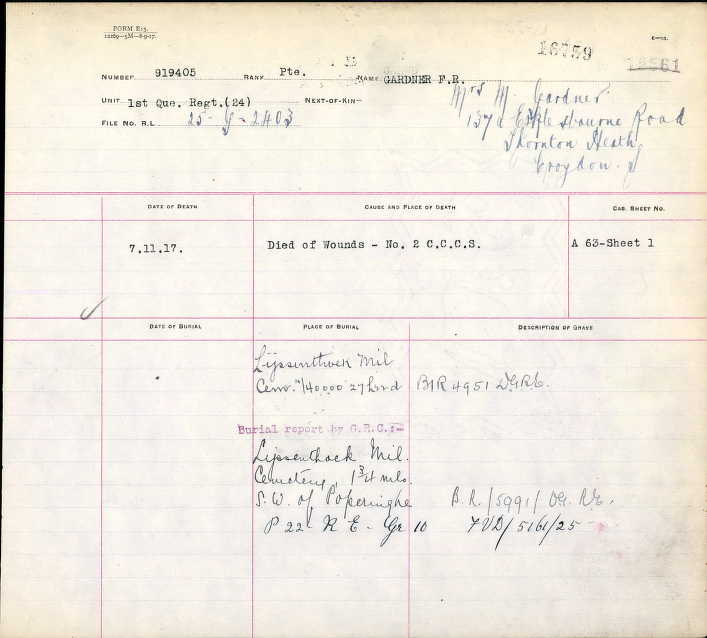 FORM E15.
16759
18561
NUMBER 919405 RANK Pte. NAME GARDNER F.R.
UNIT 1st Que. Regt.(24) NEXT-OF-KIN—
FILE NO. R.L 25-G-2403
Mrs M. Gardner
137a Road
Thornton Heath
Croydon.
DATE OF DEATH CAUSE AND PLACE OF DEATH CAS. SHEET NO.
7.11.17. Died of Wounds - No. 2 C.C.C.S. A 63-Sheet 1
DATE OF BURIAL PLACE OF BURIAL DESCRIPTION OF GRAVE
Lijssenthoek Mil
1/40000 27 BIR 4951
Burial report by G.R.C.:-
Lijssenthock Mil.
Cemetery, 1 3/4 mls.
S.W. of Poperinghe B.R./5991/
P 22 R E - Gr 10 7VD/5161/25